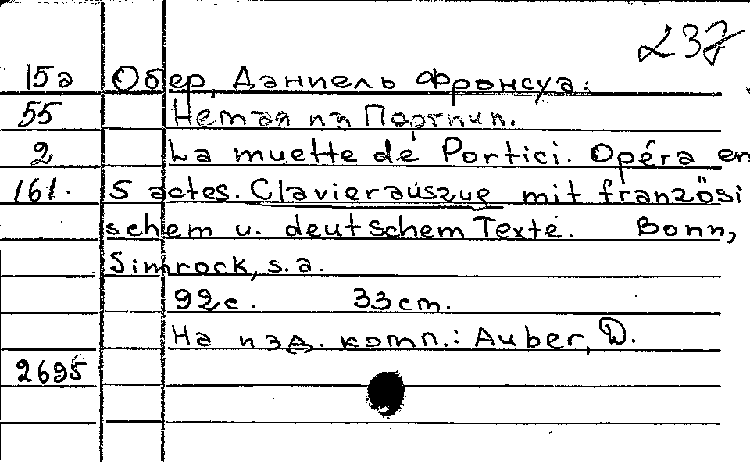 237
15а Обер, Даниель Франсуа.
55 Немая из Портичи.
2 La muette de Portici. Opéra en
161. 5 actes. Clavierauszug mit französi
schem u. deutschem Texte. Bonn,
Simrock, s.a.
92с. 33cm.
На изд. комп.: Auber, D.
2695